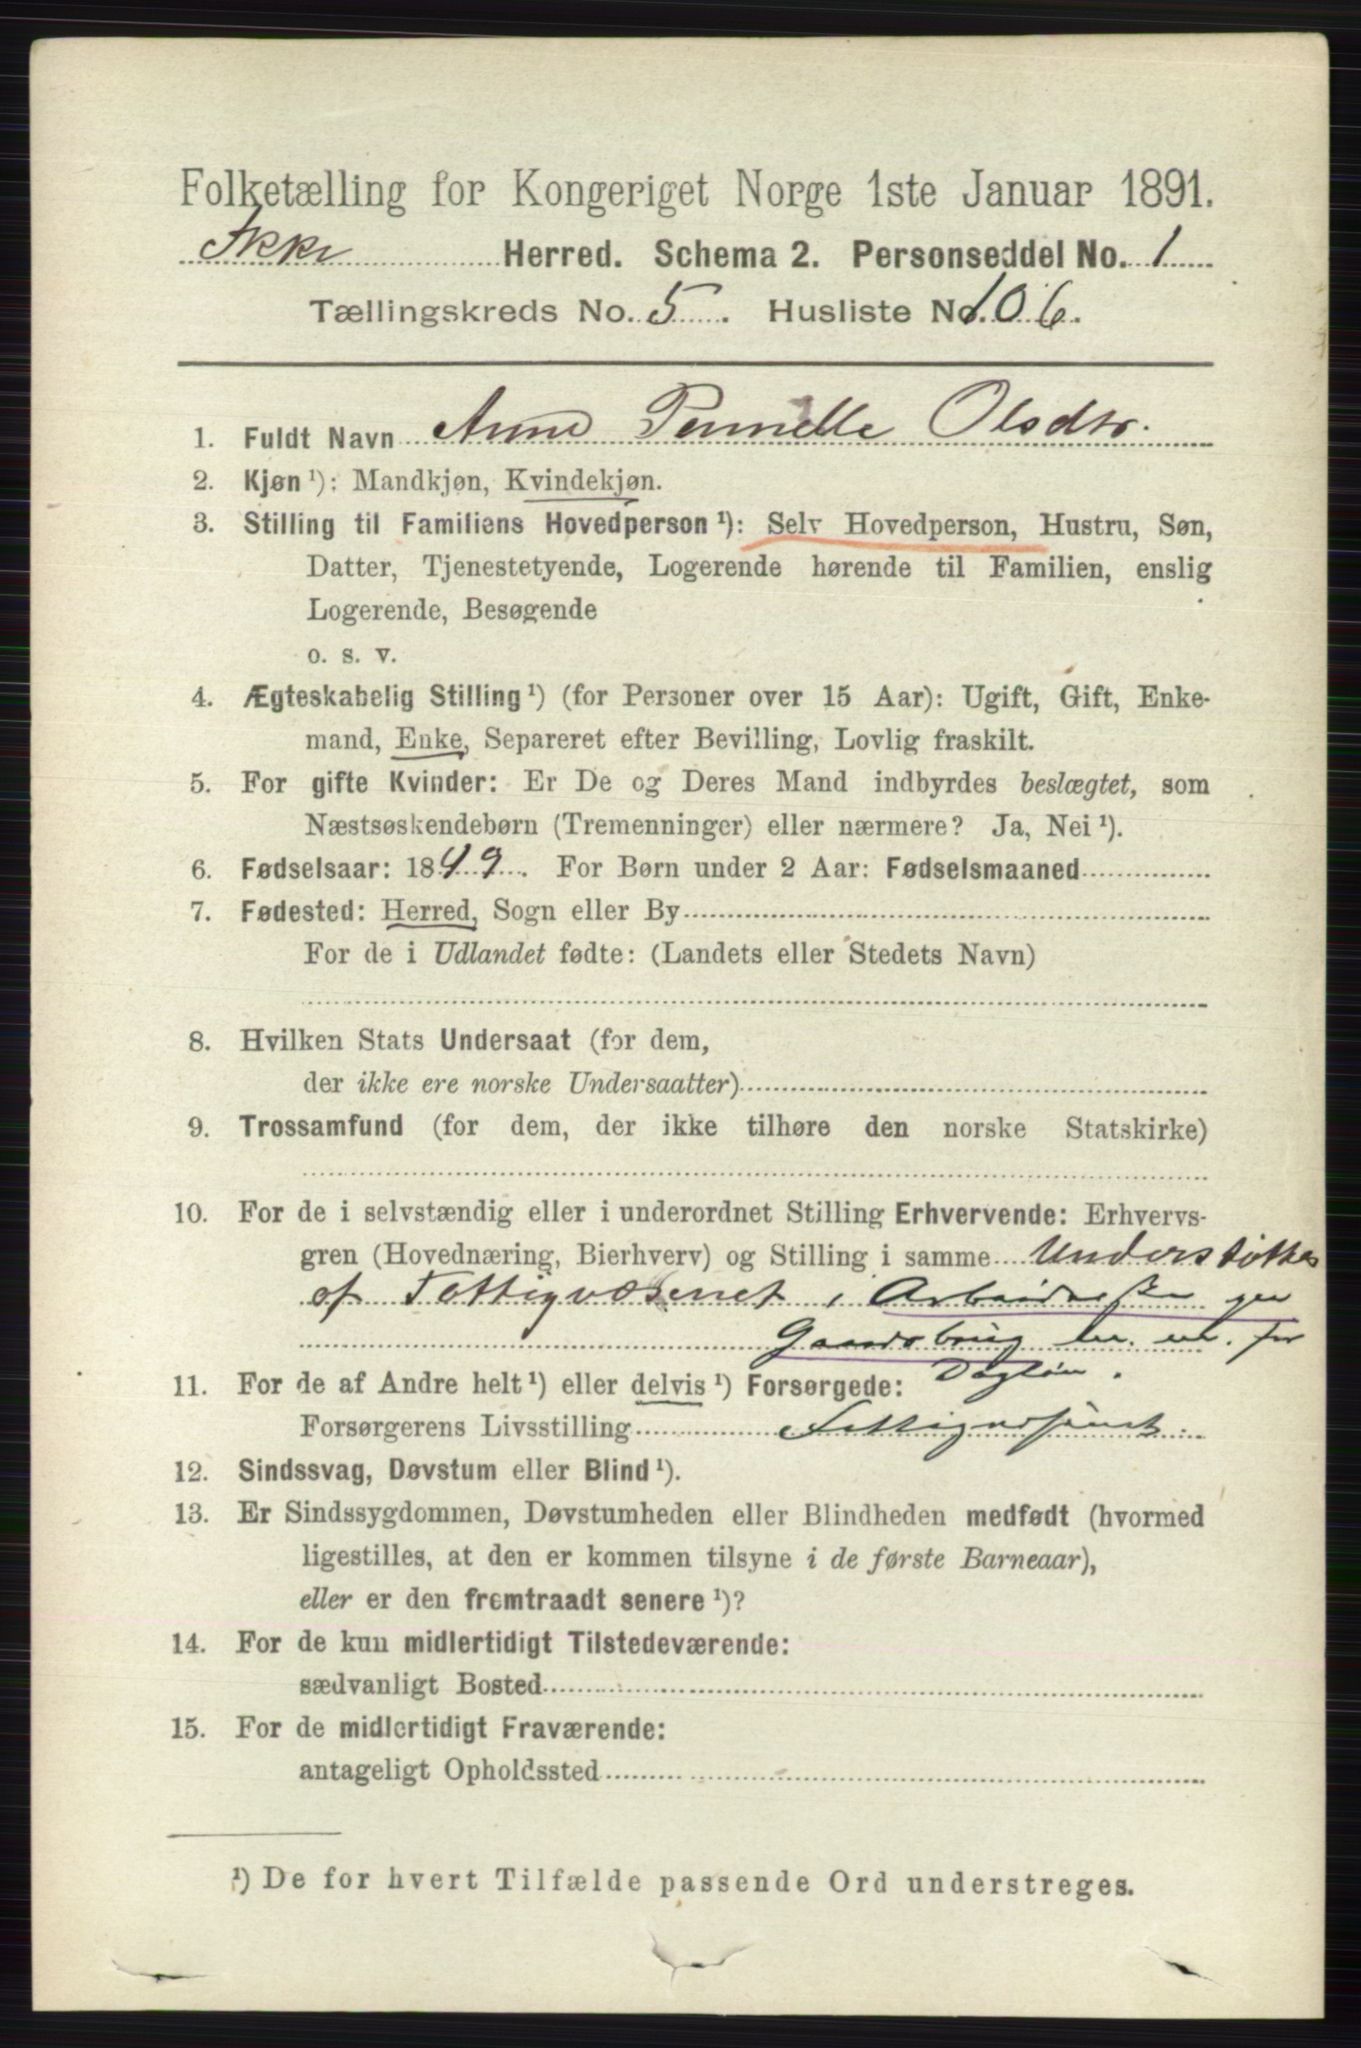 Folketælling for Kongeriget Norge 1ste Januar 1891.
Herred. Schema 2. Personseddel No. 1
Tællingskreds No. 5. Husliste No. 106.
1. Fuldt Navn Anne Pernelle Olsdtr.
2. Kjøn ¹): Mandkjøn, Kvindekjøn.
3. Stilling til Familiens Hovedperson ¹): Selv Hovedperson, Hustru, Søn,
Datter, Tjenestetyende, Logerende hørende til Familien, enslig
Logerende, Besøgende
o. s. v.
4. Ægteskabelig Stilling ¹) (for Personer over 15 Aar): Ugift, Gift, Enke-
mand, Enke, Separeret efter Bevilling, Lovlig fraskilt.
5. For gifte Kvinder: Er De og Deres Mand indbyrdes beslægtet, som
Næstsøskendebørn (Tremenninger) eller nærmere? Ja, Nei ¹).
6. Fødselsaar: 1849. For Børn under 2 Aar: Fødselsmaaned
7. Fødested: Herred, Sogn eller By
For de i Udlandet fødte: (Landets eller Stedets Navn)
8. Hvilken Stats Undersaat (for dem,
der ikke ere norske Undersaatter)
9. Trossamfund (for dem, der ikke tilhøre den norske Statskirke)
10. For de i selvstændig eller i underordnet Stilling Erhvervende: Erhvervs-
gren (Hovednæring, Bierhverv) og Stilling i samme Understøttes
af Fattigvæsenet, Arbeiderske
Gaardsbrug m. m. for
Dagløn.
11. For de af Andre helt ¹) eller delvis ¹) Forsørgede:
Forsørgerens Livsstilling Fattigvæsenet
12. Sindssvag, Døvstum eller Blind ¹).
13. Er Sindssygdommen, Døvstumheden eller Blindheden medfødt (hvormed
ligestilles, at den er kommen tilsyne i de første Barneaar),
eller er den fremtraadt senere ¹)?
14. For de kun midlertidigt Tilstedeværende:
sædvanligt Bosted
15. For de midlertidigt Fraværende:
antageligt Opholdssted
¹) De for hvert Tilfælde passende Ord understreges.